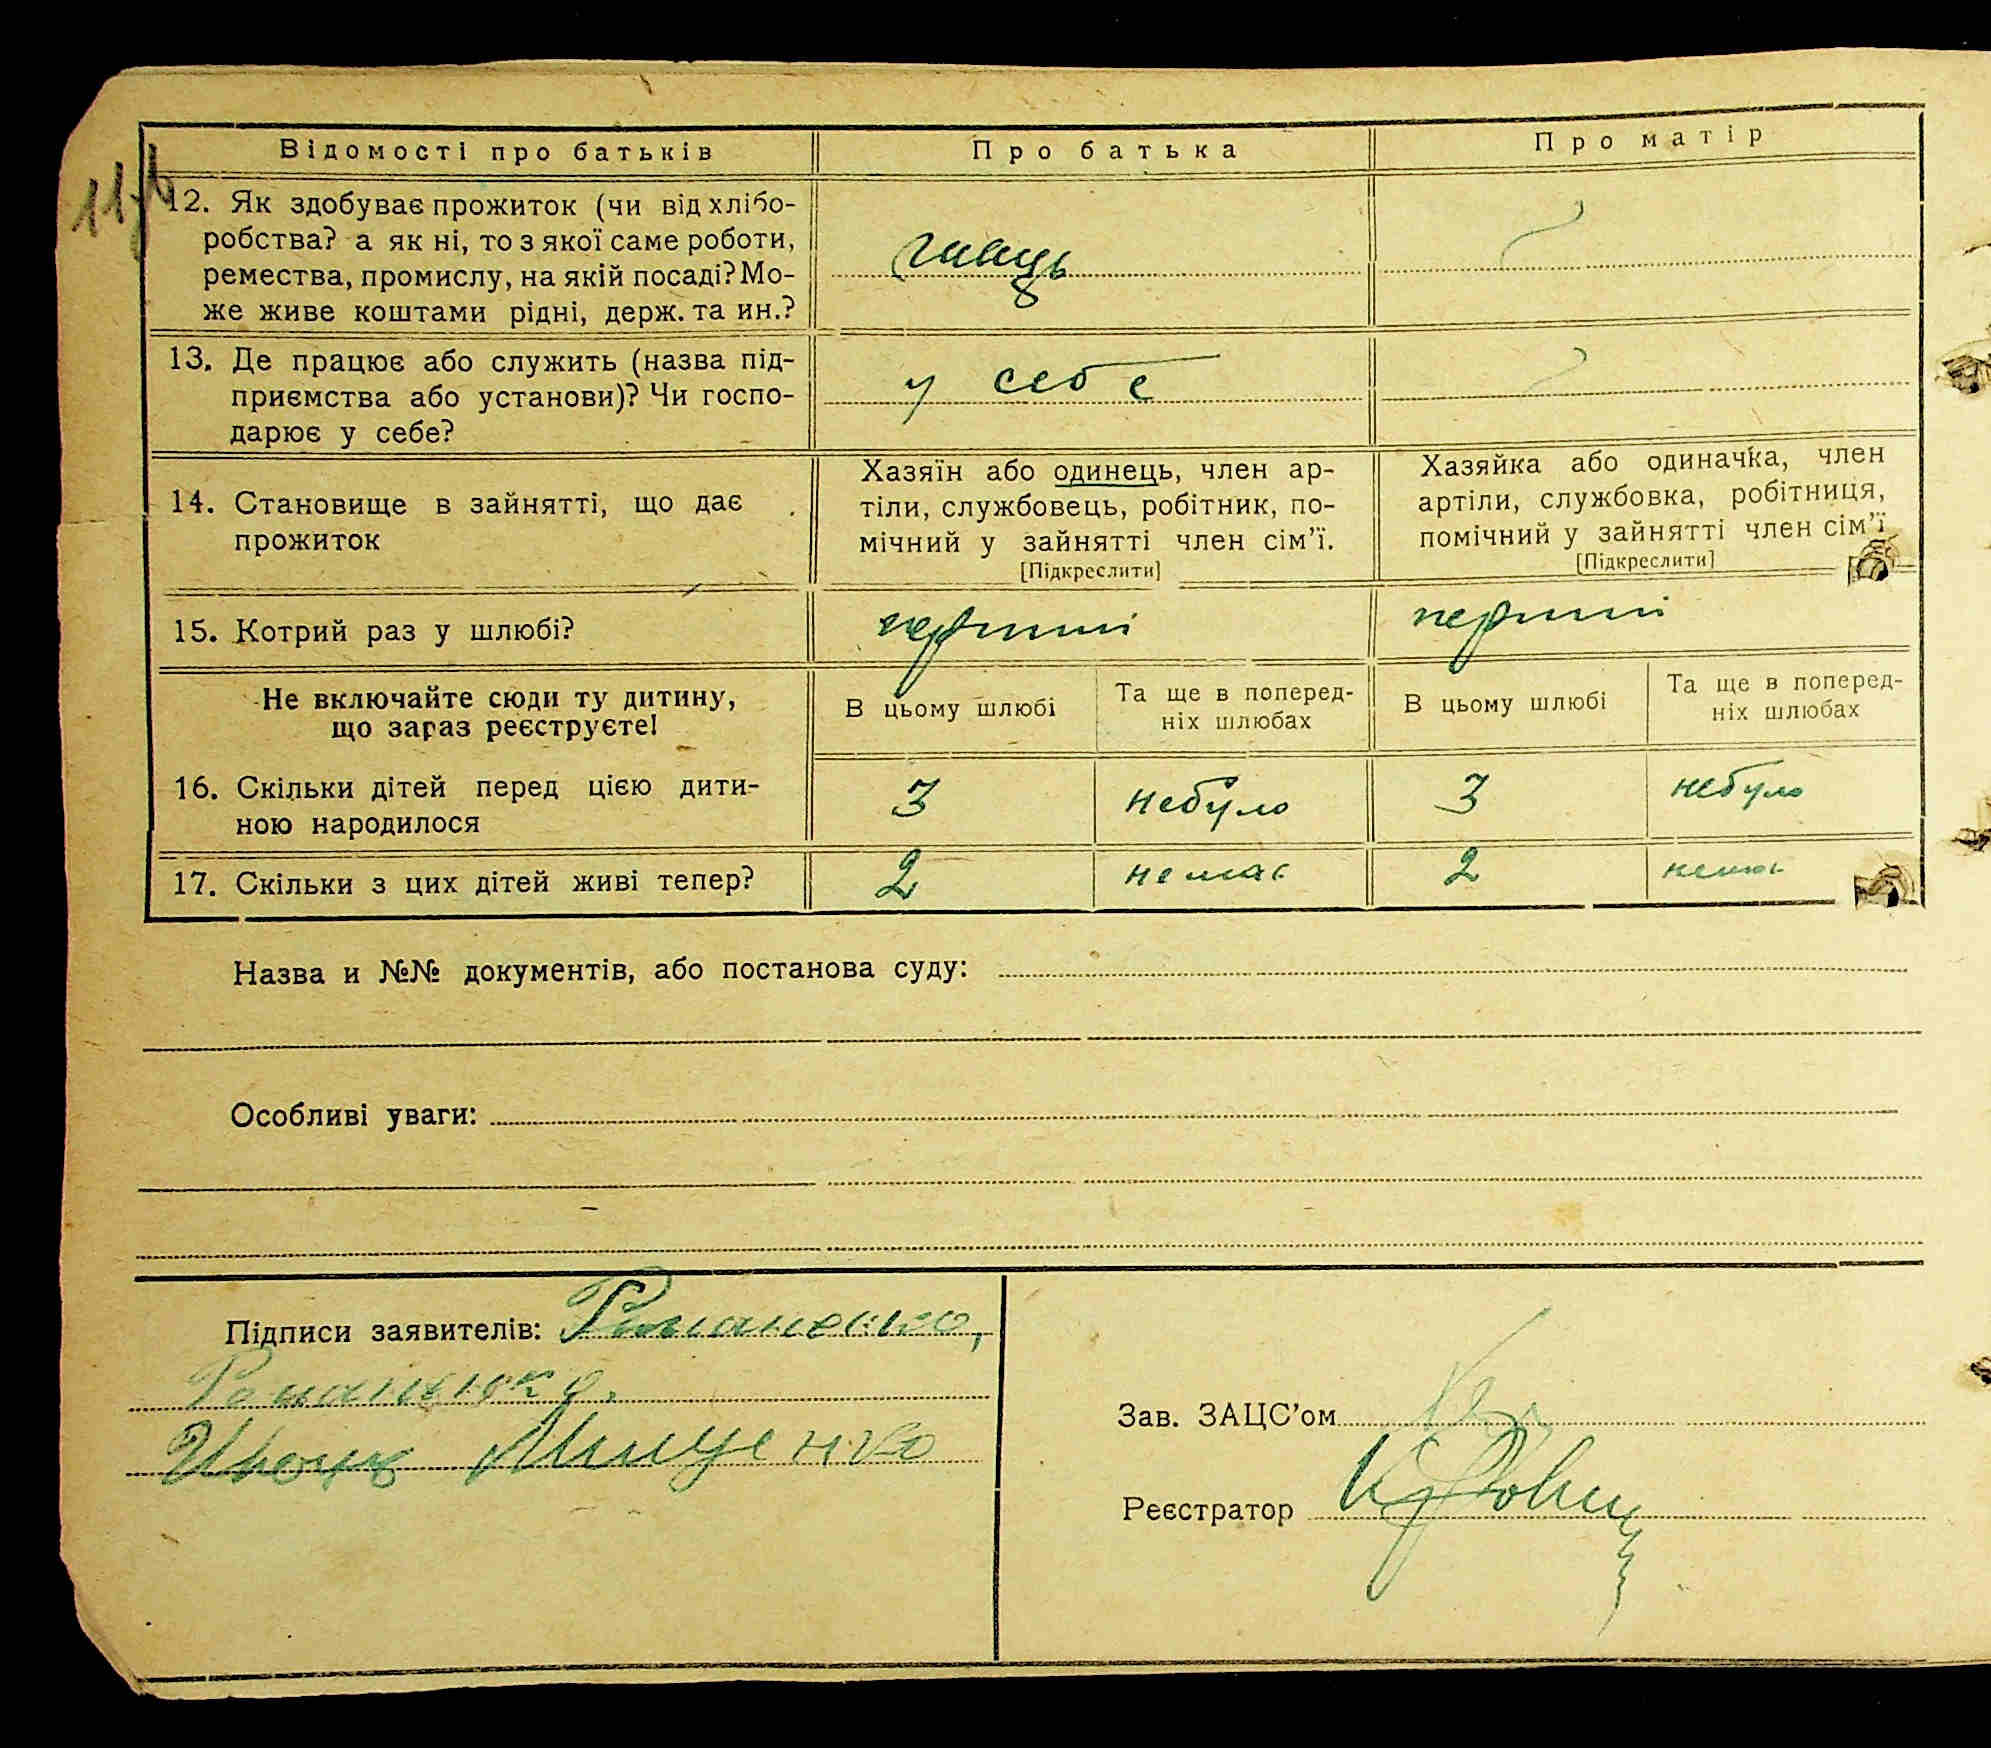 Відомості про батьків Про батька Про матір
12. Як здобуває прожиток (чи від хлібо-
робства? а як ні, то з якої саме роботи,
ремества, промислу, на якій посаді? Мо-
же живе коштами рідні, держ. та ин.?
13. Де працює або служить (назва під-
приємства або установи)? Чи госпо-
дарює у себе?
у себе
14. Становище в зайнятті, що дає
прожиток
Хазяїн або одинець, член ар-
тіли, службовець, робітник, по-
мічний у зайнятті член сім'ї.
[Підкреслити]
Хазяйка або одиначка, член
артіли, службовка, робітниця,
помічний у зайнятті член сім'ї
[Підкреслити]
15. Котрий раз у шлюбі?
перший перший
Не включайте сюди ту дитину,
що зараз реєструєте!
В цьому шлюбі
Та ще в поперед-
ніх шлюбах
В цьому шлюбі
Та ще в поперед-
ніх шлюбах
16. Скільки дітей перед цією дити-
ною народилося
3 небуло 3 небуло
17. Скільки з цих дітей живі тепер? 2 немає 2 немає
Назва и №№ документів, або постанова суду:
Особливі уваги:
Підписи заявителів: Романенко,
Романенко.
Мищенко
Зав. ЗАЦС'ом
Реєстратор